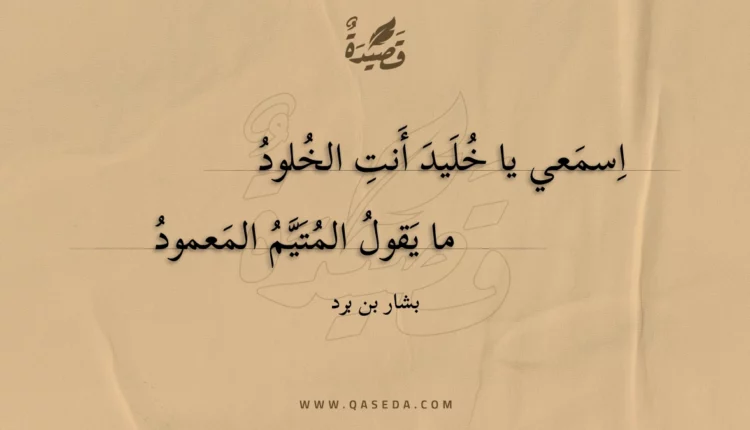 قَصِيْدَةٌ
اِسمَعي يا خُلَيدَ أَنتِ الخُلودُ
ما يَقولُ المُتَيَّمُ المَعمودُ
بشار بن برد
WWW.QASEDA.COM